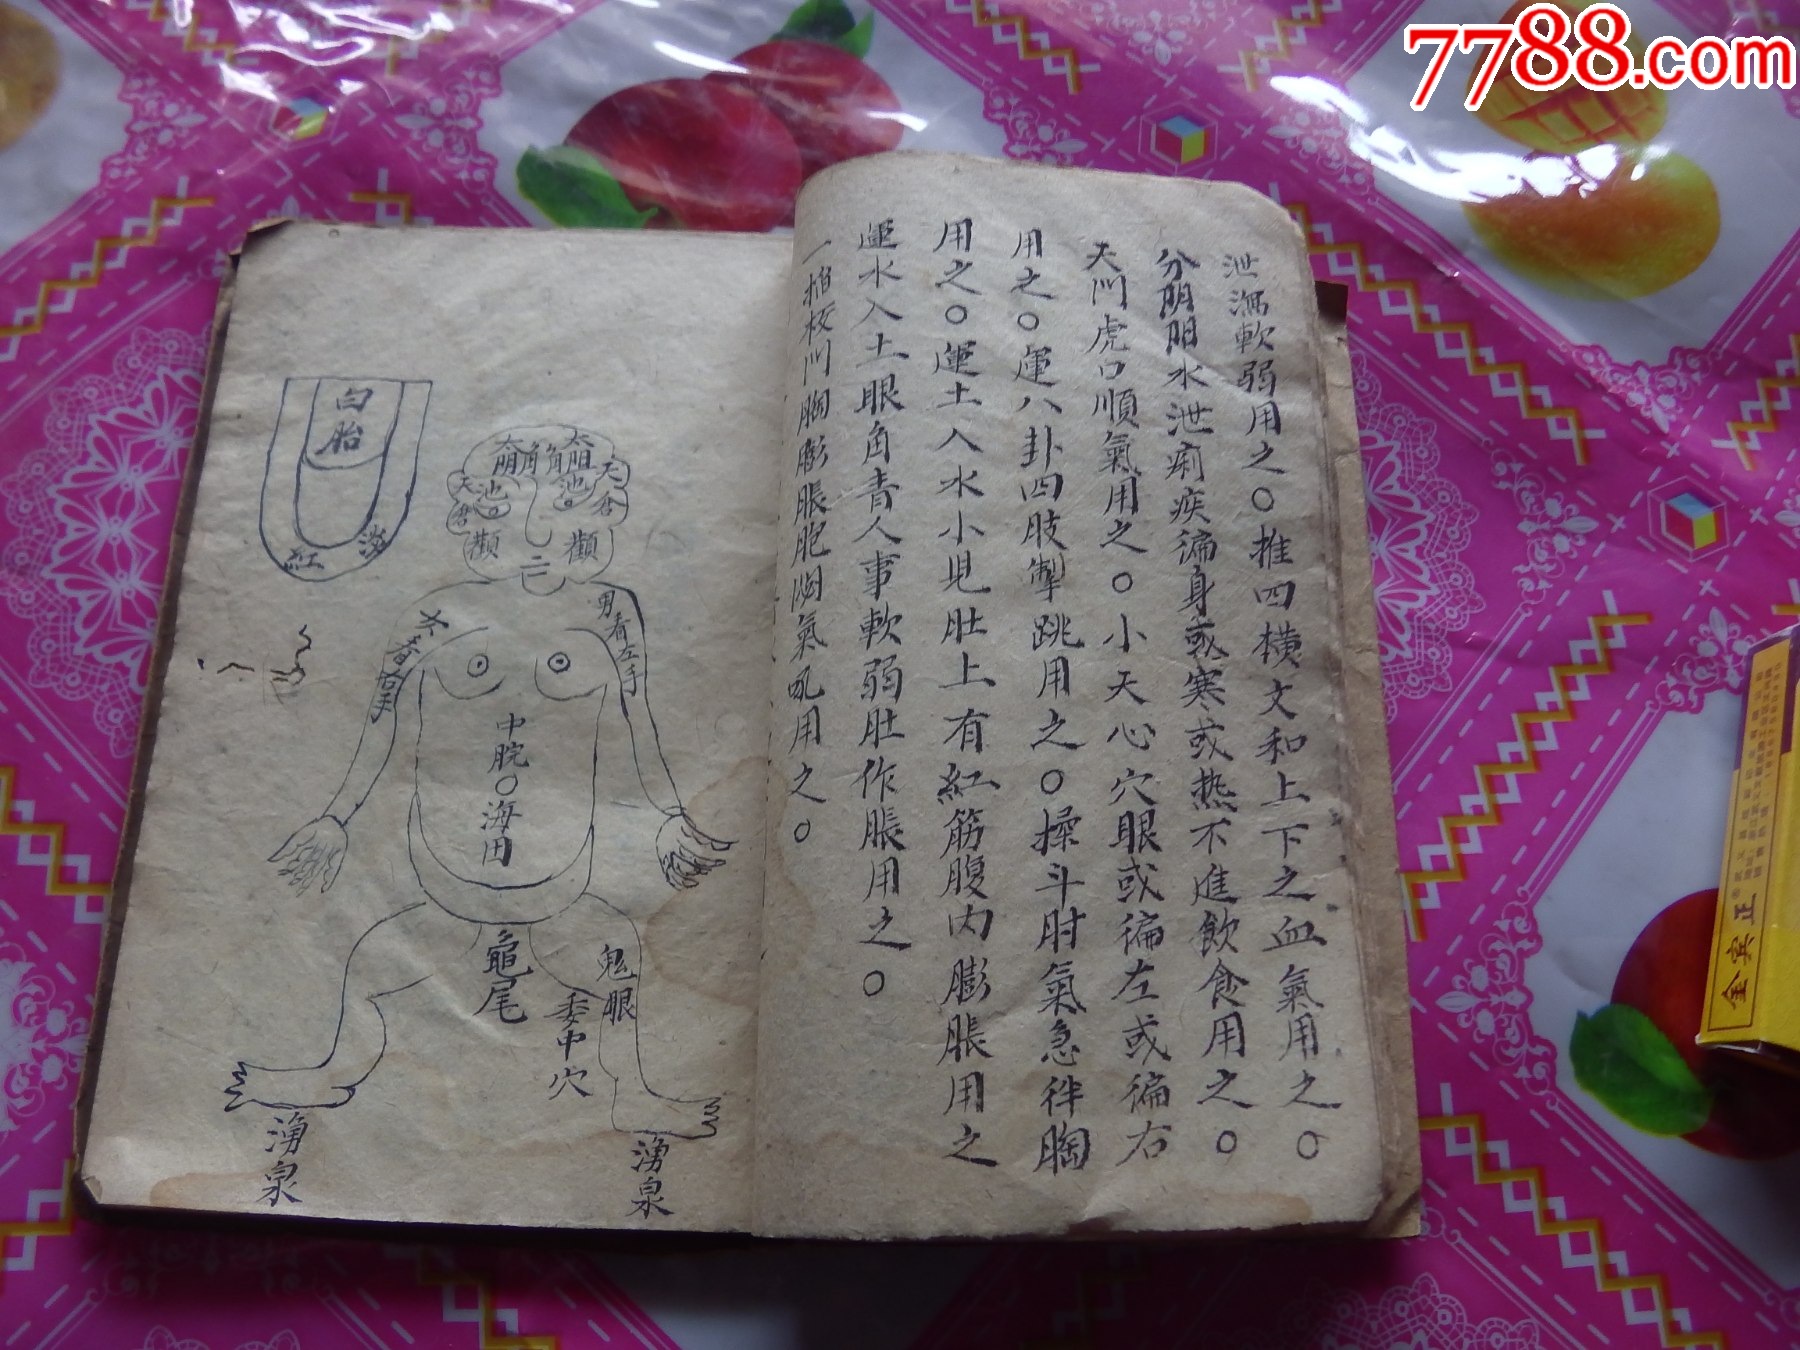 7788.com
泄瀉軟弱用之○推四橫文和上下之血氣用之○
分阴阳水泄痢疾徧身或寒或热不進飲食用之○
天门虎口順氣用之○小天心穴眼或徧左或徧右
用之○運八卦四肢掣跳用之○操斗肘氣急伴胸
用之○運土入水小児肚上有紅筋腹内膨脹用之
運水入土眼角青人事軟弱肚作脹用之○
一掐板门胸膨脹胞悶氣吼用之○
白胎
紅
淡
太阳
太阴
角
角
天倉
天君
池
池
顴
顴
男看左手
女看右手
中脘○海田
龜尾
鬼眼
委中穴
湧泉
湧泉
金寅正